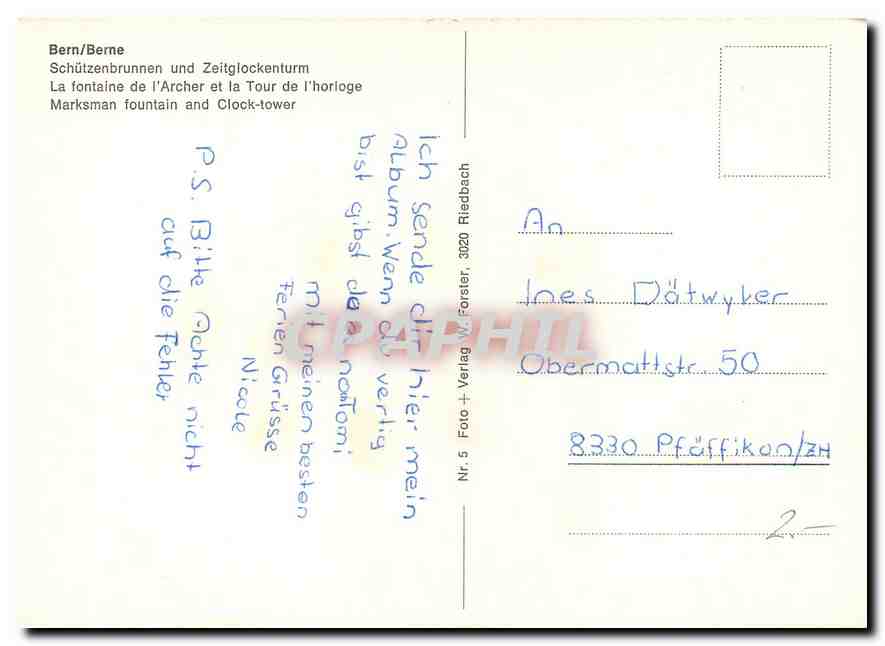 Bern/Berne
Schützenbrunnen und Zeitglockenturm
La fontaine de l'Archer et la Tour de l'horloge
Marksman fountain and Clock-tower
Ich sende dir hier mein
Album. Wenn du vertig
bist gibst de es no Tomi
mit meinen besten
Ferien Grüsse
Nicole
P.S. Bitte Achte nicht
auf die Fehler
Nr. 5 Foto + Verlag W. Forster, 3020 Riedbach
An
Ines Dätwyler
Obermattstr. 50
8330 Pfäffikon/ZH
2.-
CPAPHIL